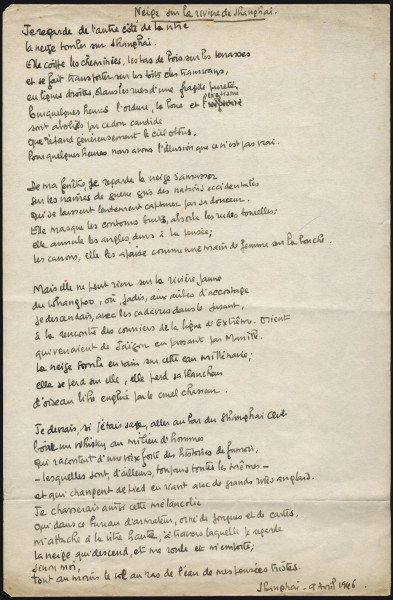 Neige sur la rivière de Shanghai.
Je regarde de l'autre côté de la vitre
la neige tomber sur Shanghai.
Elle coiffe les cheminées, les tas de bois sur les terrasses
et se fait transporter sur les toits des tramways,
en lignes droites, dans les rues d'une fragile pureté.
Pour quelques heures l'ordure, la boue et l'
sont abolies par ce don candide
que répand généreusement le ciel obtus.
Pour quelques heures nous avons l'illusion que ce n'est pas vrai.
De ma fenêtre, je regarde la neige s'amasser
sur les navires de guerre gris des nations occidentales
qui se laissent lentement capturer par sa douceur.
Elle masque les contours durs, absorbe les rudes tourelles;
elle annule les angles durs à la pensée;
les canons, elle les apaise comme une main de femme sur la bouche.
Mais elle ne peut rien sur la rivière jaune
du Whangpoo, où, jadis, aux aubes d'accostage
je descendais, avec les cadavres dans le jusant,
à la rencontre des courriers de la ligne d'Extrême-Orient
que venaient de Saïgon en passant par Manille.
La neige tombe en vain sur cette eau millénaire;
elle se perd sur elle, elle perd sa blancheur
d'oiseau libre englué par le cruel chasseur.
Je devrais, si j'étais sage, aller au bar du Shanghai Club
boire un whisky au milieu d'hommes
qui racontent d'une voix forte des histoires de fumoir,
- lesquelles sont, d'ailleurs, toujours toutes les mêmes -
et qui changent de pied en riant avec de grands rires anglais.
Je chasserais ainsi cette mélancolie
qui dans ce bureau d'armateur, orné de jonques et de cartes,
m'attache à la vitre haute, à travers laquelle je regarde
la neige qui descend, et me roule et m'emporte;
sinon moi,
tout au moins le vol au ras de l'eau de mes pensées tristes.
Shanghai - 9 Avril 1946